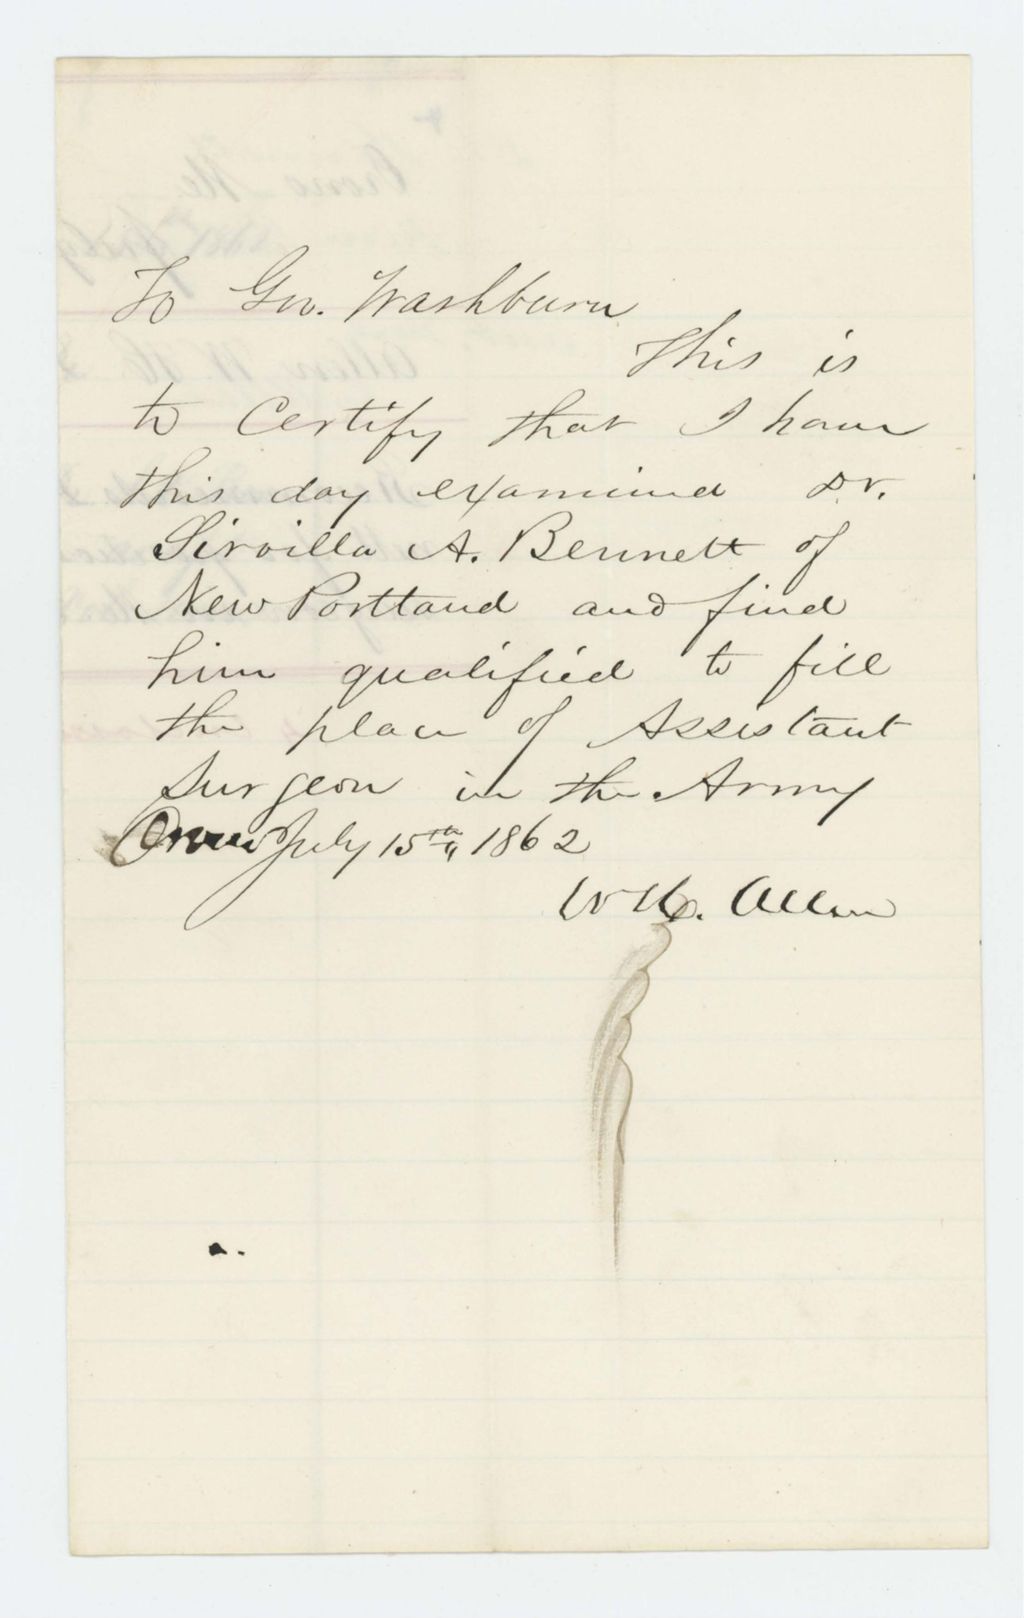 To Gov. Washburn
This is
to Certify that I have
this day examined Dr.
Sirvilla A. Bennett of
New Portland and find
him qualified to fill
the place of Assistant
Surgeon in the Army
Orono July 15th, 1862
W H. Allen